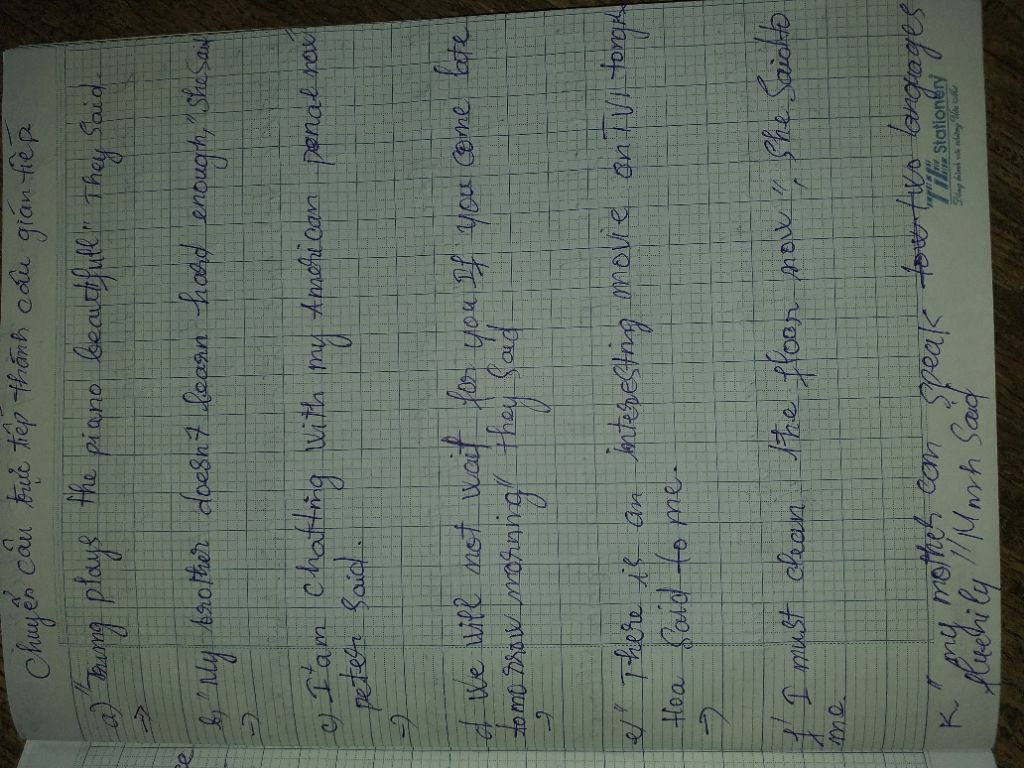 Chuyển câu trực tiếp thành câu gián tiếp
a) "Trung plays the piano beautifull" They said.
=>
b, "My brother doesn't learn hard enough," She said
=>
c) I'am chatting with my American penal now
peter said.
=>
d) We will not wait for you If you come late
tomorrow morning" they said
=>
e) " There is an interesting movie on TV tonight
Hoa said to me.
=>
f) I must clean the floor now", She said to
me.
K " my mother can speak two languages
Minh said
TiTi Stationery